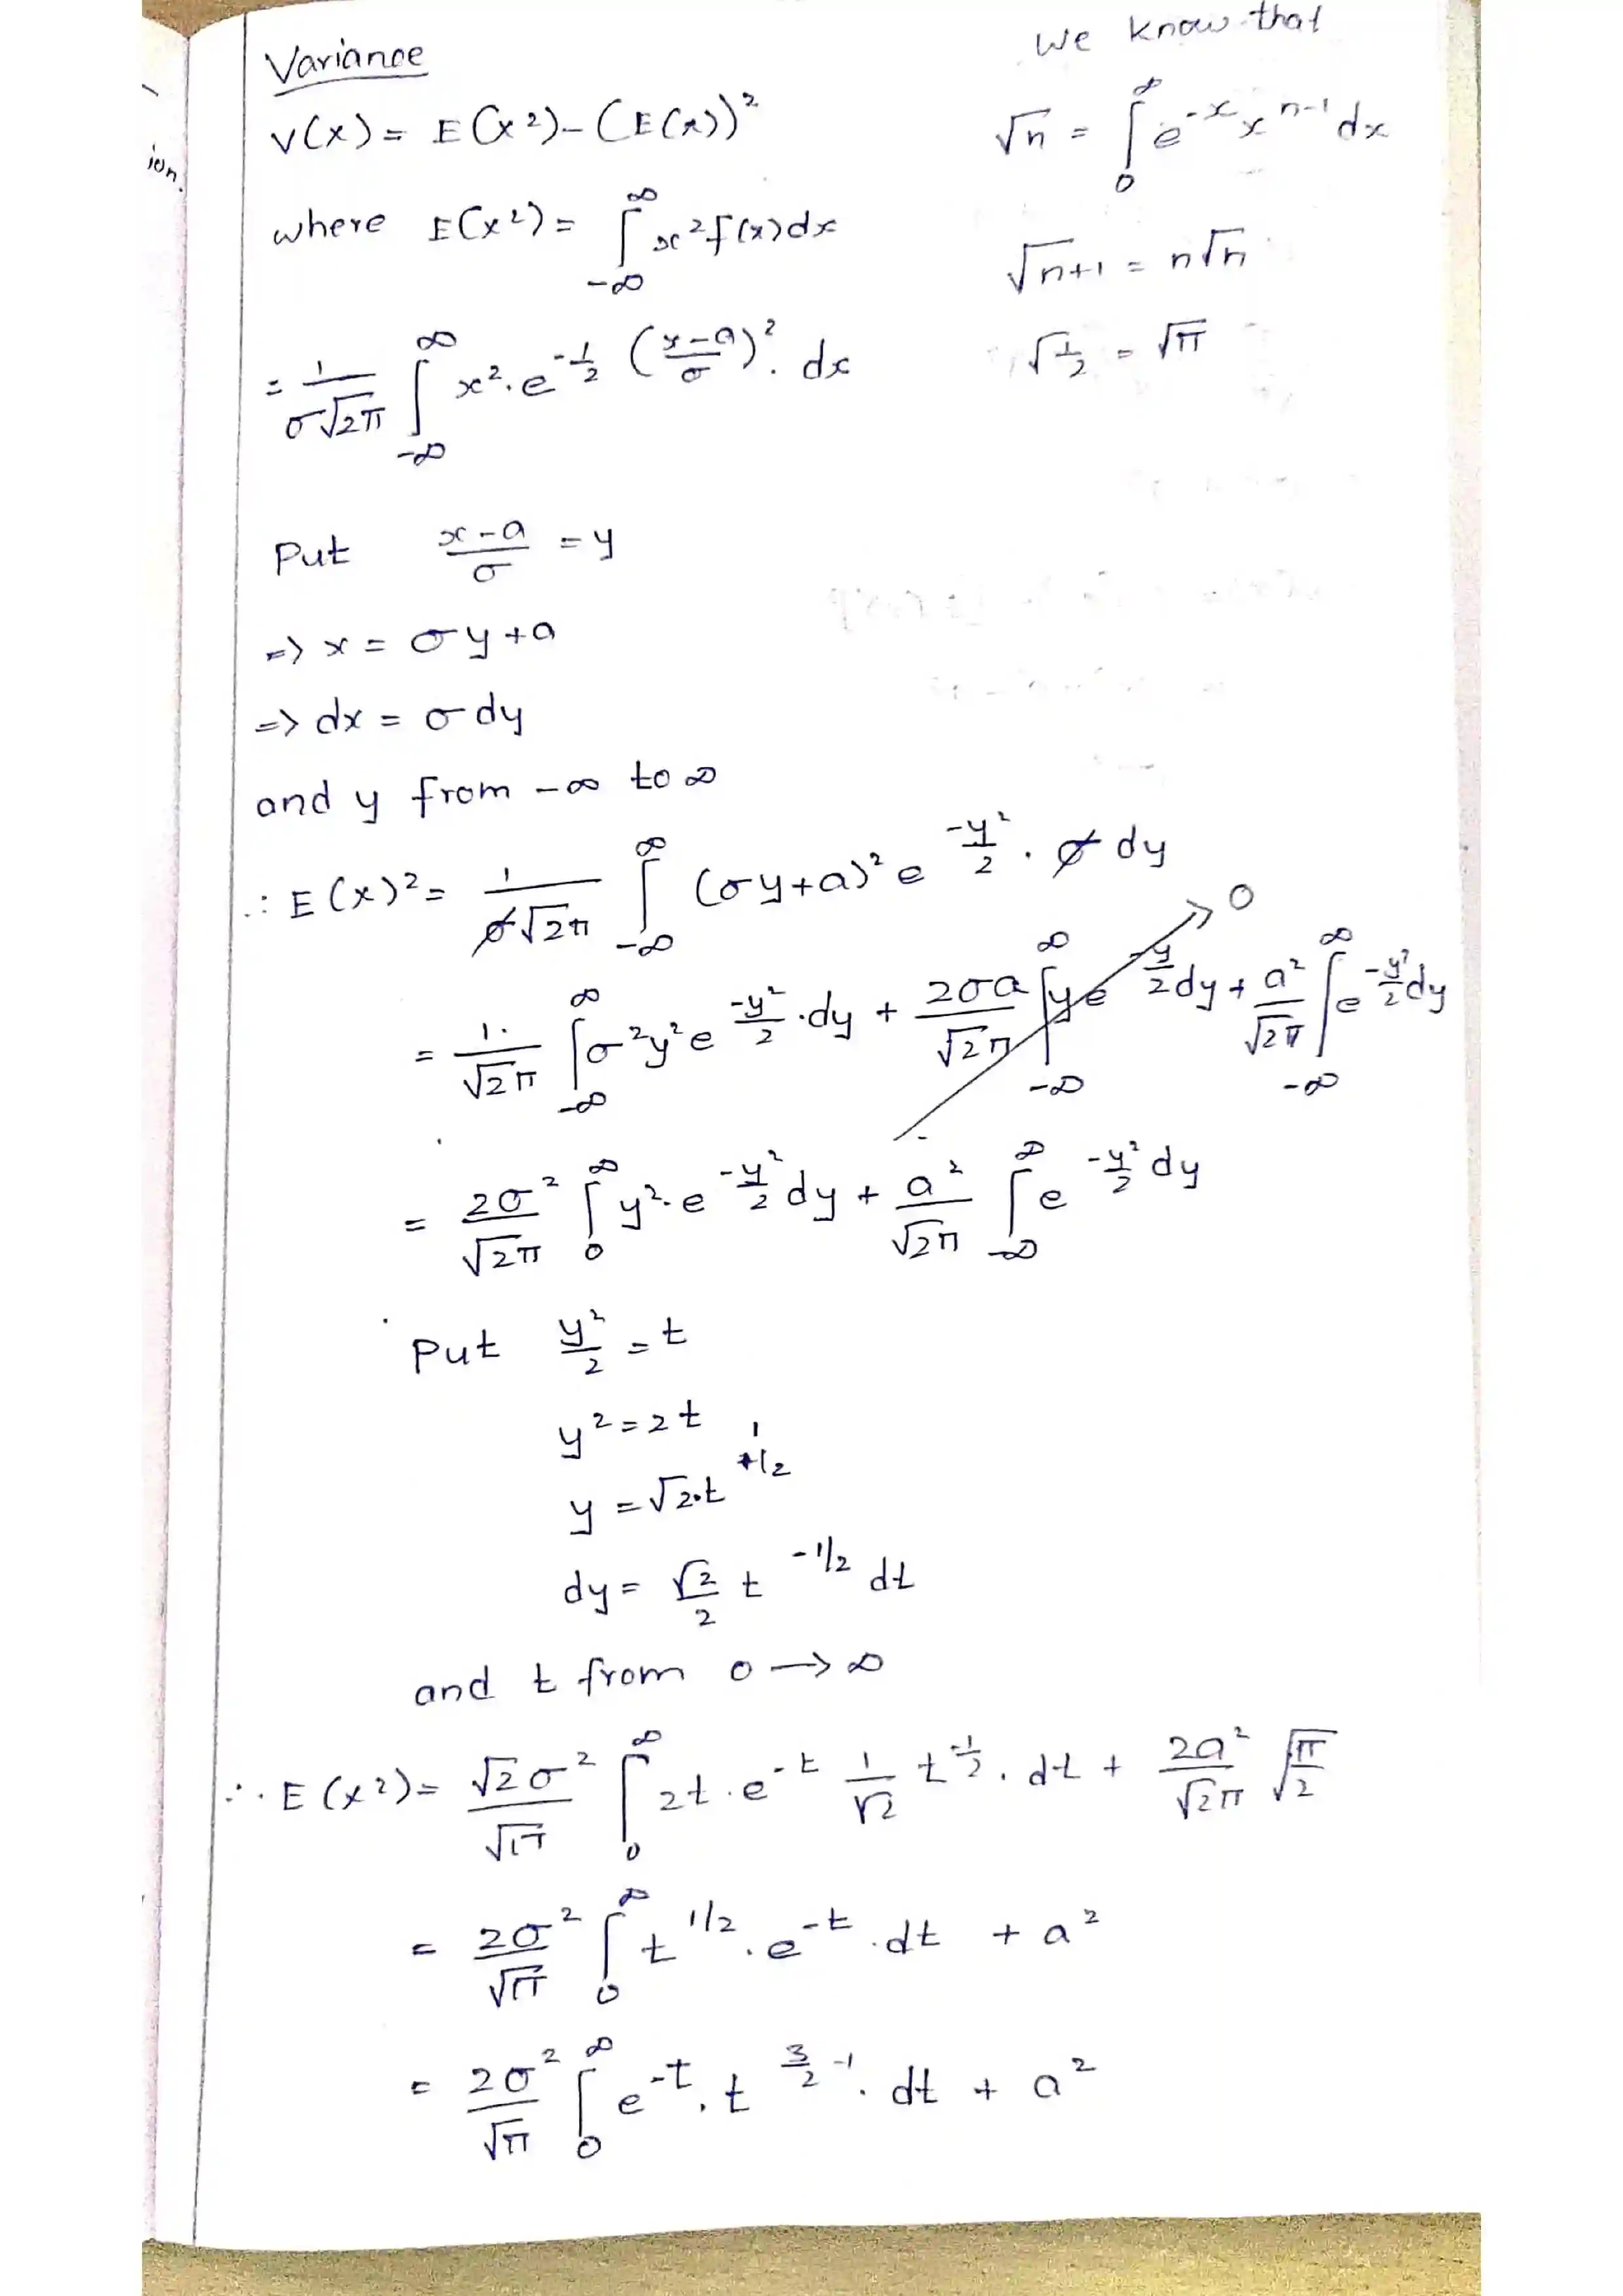 ion.
Variance
V(x) = E(x²) - (E(x))²
where E(x²) = ∫_{-∞}^{∞} x² f(x) dx
= 1/(σ√2π) ∫_{-∞}^{∞} x². e^{-1/2 ((x-a)/σ)²}. dx
We know that
√n = ∫_0^∞ e^{-x} x^{n-1} dx
√n+1 = n√n
√1/2 = √π
Put (x-a)/σ = y
=> x = σy+a
=> dx = σ dy
and y from -∞ to ∞
∴ E(x)² = 1/(σ√2π) ∫_{-∞}^{∞} (σy+a)² e^{-y²/2} . σ dy
= 1/√2π ∫_{-∞}^{∞} σ²y² e^{-y²/2} .dy + 2σa/√2π ∫_{-∞}^{∞} y e^{-y/2} dy + a²/√2π ∫_{-∞}^{∞} e^{-y²/2} dy → 0
= 2σ²/√2π ∫_0^∞ y². e^{-y²/2} dy + a²/√2π ∫_{-∞}^{∞} e^{-y²/2} dy
Put y²/2 = t
y² = 2t
y = √2.t^{1/2}
dy = √2/2 t^{-1/2} dt
and t from 0 → ∞
∴ E(x²) = √2σ²/√π ∫_0^∞ 2t . e^{-t} 1/√2 t^{-1/2} . dt + 2a²/√2π √π/2
= 2σ²/√π ∫_0^∞ t^{1/2} . e^{-t} . dt + a²
= 2σ²/√π ∫_0^∞ e^{-t} . t^{3/2 -1} . dt + a²